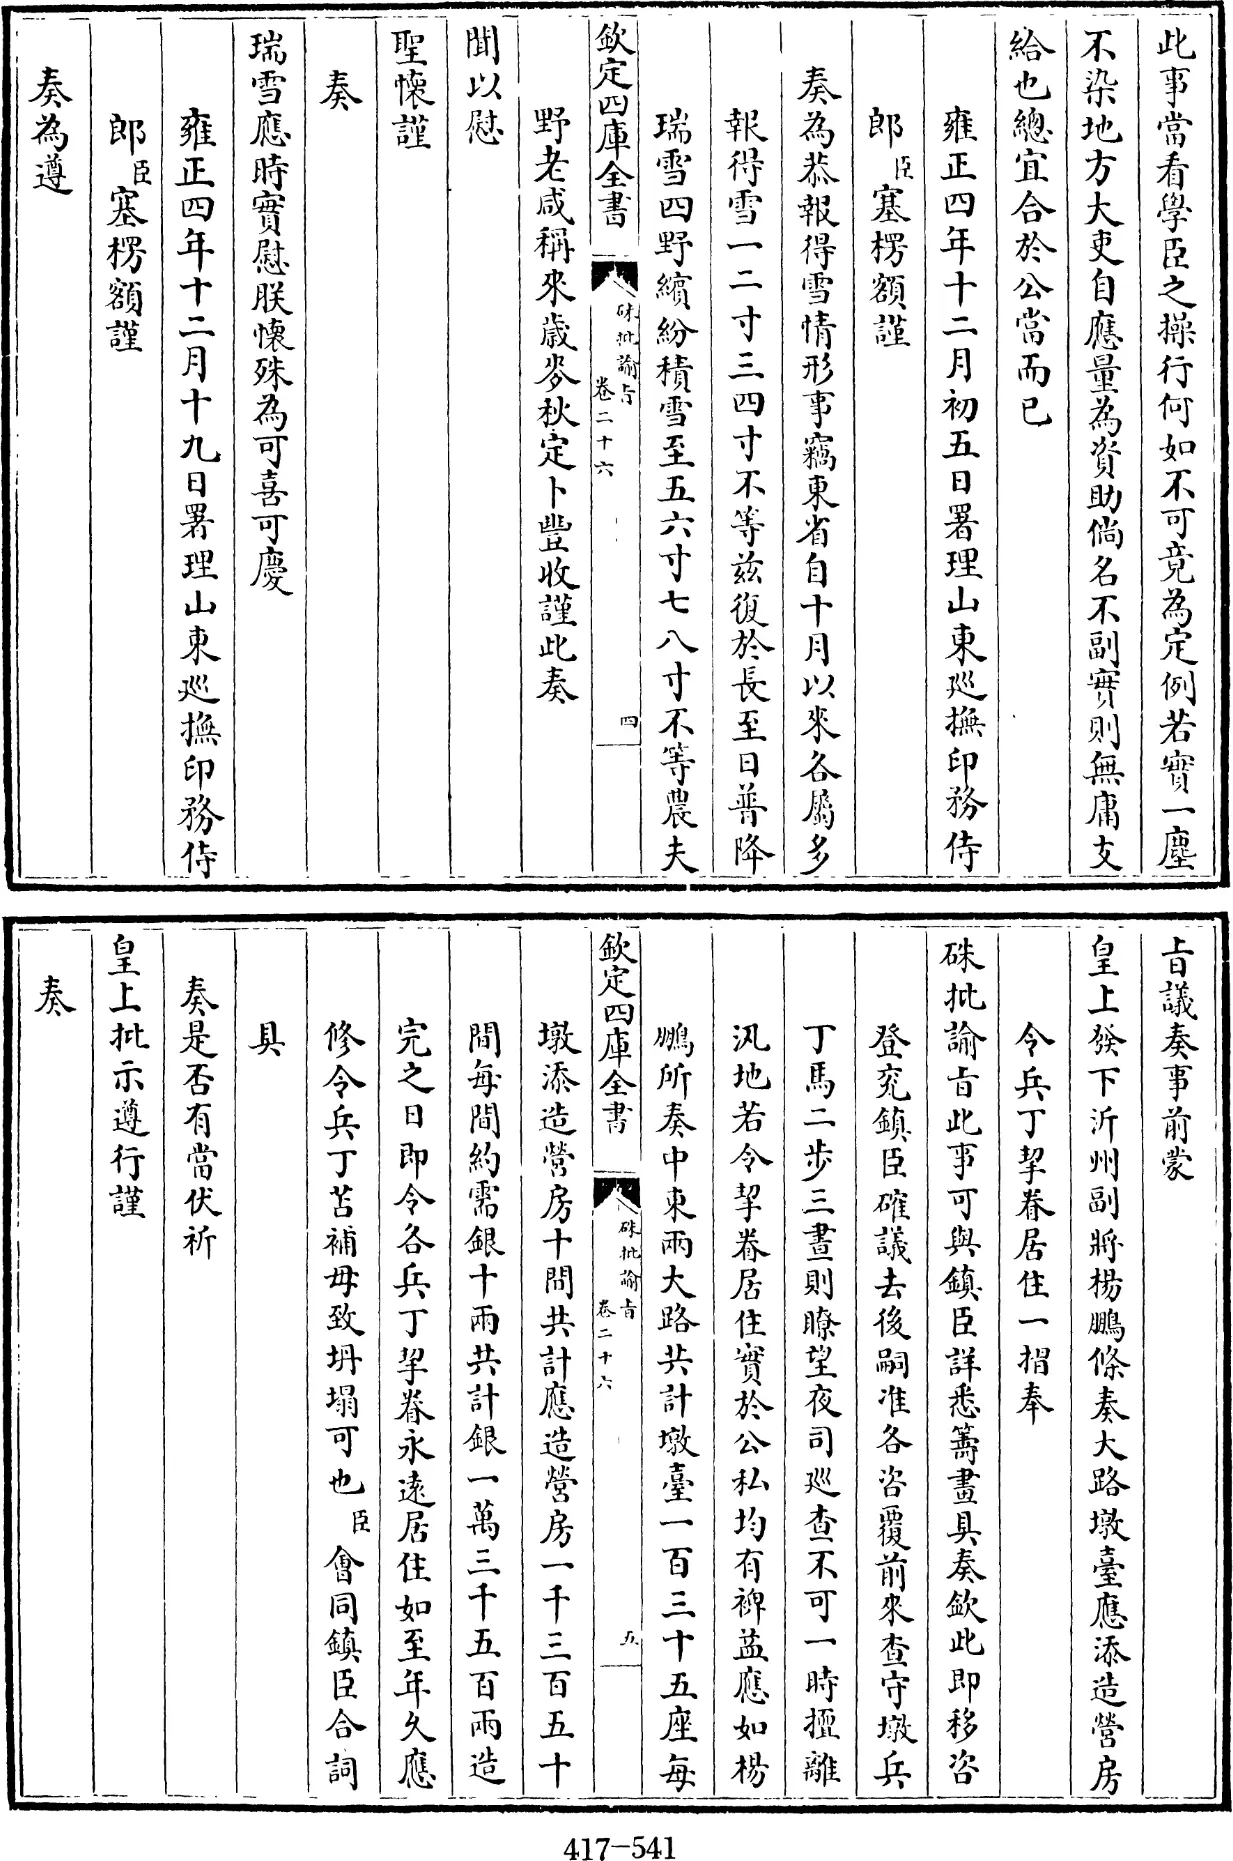 此事當看學臣之操行何如不可竟為定例若實一塵
不染地方大吏自應量為資助倘名不副實則無庸支
給也總宜合於公當而已
雍正四年十二月初五日署理山東廵撫印務侍
郎臣塞楞額謹
奏為恭報得雪情形事竊東省自十月以來各屬多
報得雪一二寸三四寸不等兹復於長至日普降
瑞雪四野繽紛積雪至五六寸七八寸不等農夫
欽定四庫全書
硃批諭旨
卷二十六
四
野老咸稱來歲麥秋定卜豐收謹此奏
聞以慰
聖懷謹
奏
瑞雪應時實慰朕懷殊為可喜可慶
雍正四年十二月十九日署理山東廵撫印務侍
郎臣塞楞額謹
奏為遵
旨議奏事前蒙
皇上發下沂州副將楊鵬條奏大路墩臺應添造營房
令兵丁挈眷居住一摺奉
硃批諭旨此事可與鎮臣詳悉籌畫具奏欽此即移咨
登兖鎮臣確議去後嗣准各咨覆前來查守墩兵
丁馬二步三晝則瞭望夜司廵查不可一時擅離
汛地若令挈眷居住實於公私均有裨益應如楊
鵬所奏中東兩大路共計墩臺一百三十五座每
欽定四庫全書
硃批諭旨
卷二十六
五
墩添造營房十間共計應造營房一千三百五十
間每間約需銀十兩共計銀一萬三千五百兩造
完之日即令各兵丁挈眷永遠居住如至年久應
修令兵丁苫補毋致坍塌可也臣會同鎮臣合詞
具
奏是否有當伏祈
皇上批示遵行謹
奏
417-541